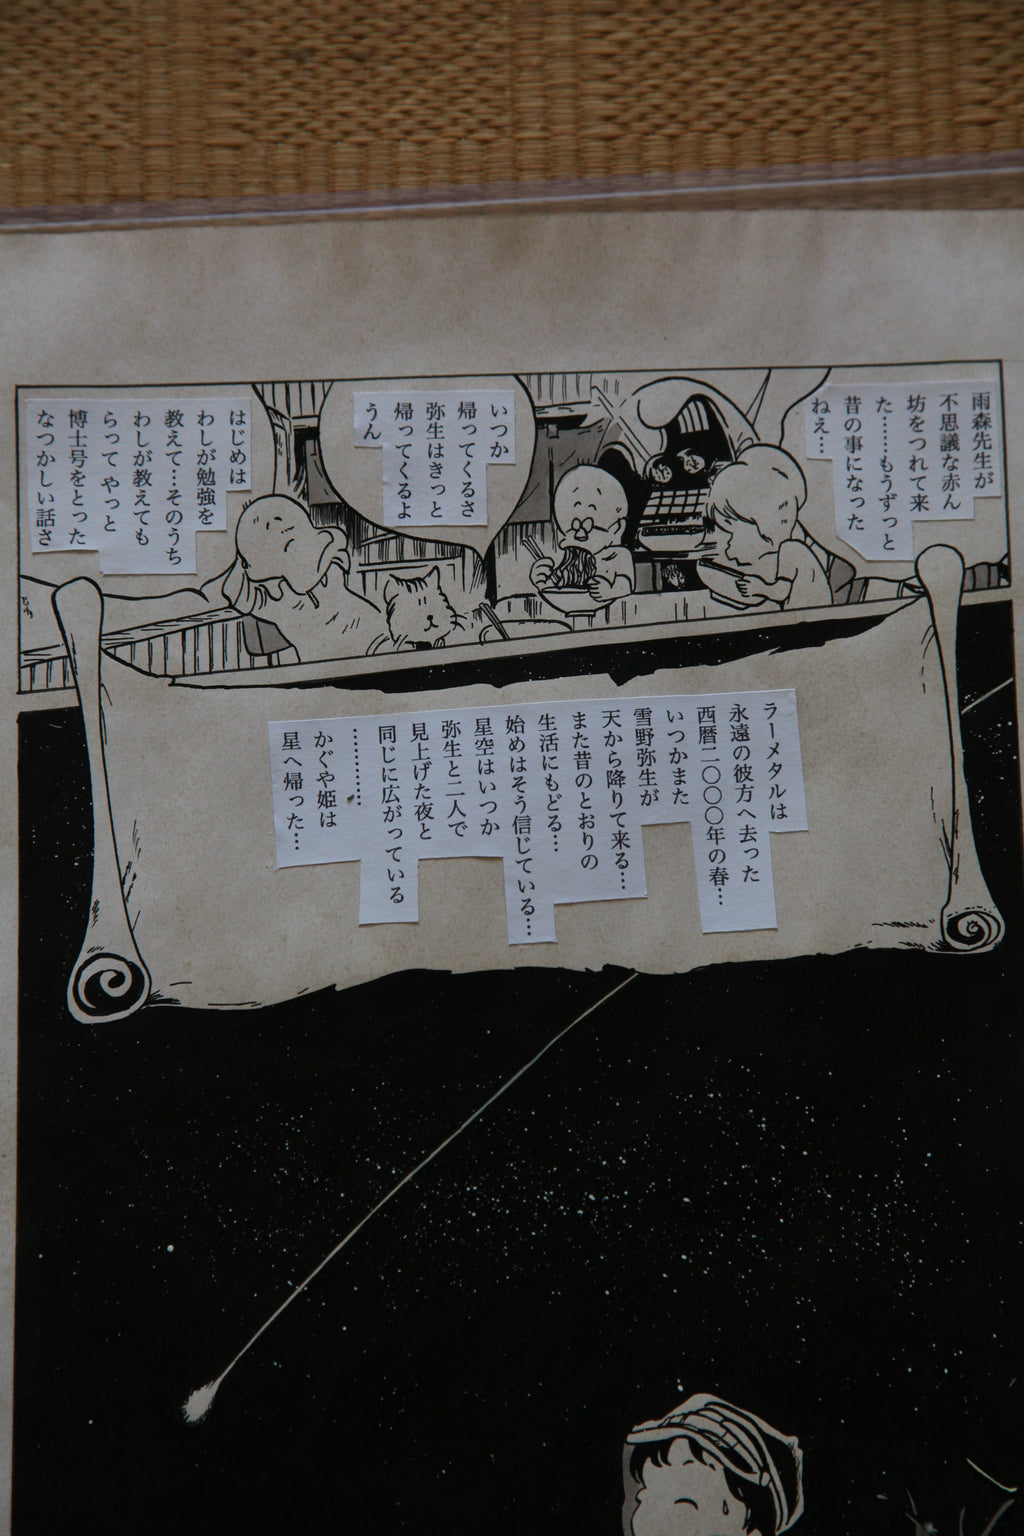 雨森先生が
不思議な赤ん
坊をつれて来
た……もうずっと
昔の事になった
ねえ…
いつか
帰ってくるさ
弥生はきっと
帰ってくるよ
うん
はじめは
わしが勉強を
教えて…そのうち
わしが教えても
らって やっと
博士号をとった
なつかしい話さ
ラーメタルは
永遠の彼方へ去った
西暦二〇〇〇年の春…
いつかまた
雪野弥生が
天から降りて来る…
また昔のとおりの
生活にもどる…
始めはそう信じている…
星空はいつか
弥生と二人で
見上げた夜と
同じに広がっている
…………
かぐや姫は
星へ帰った…